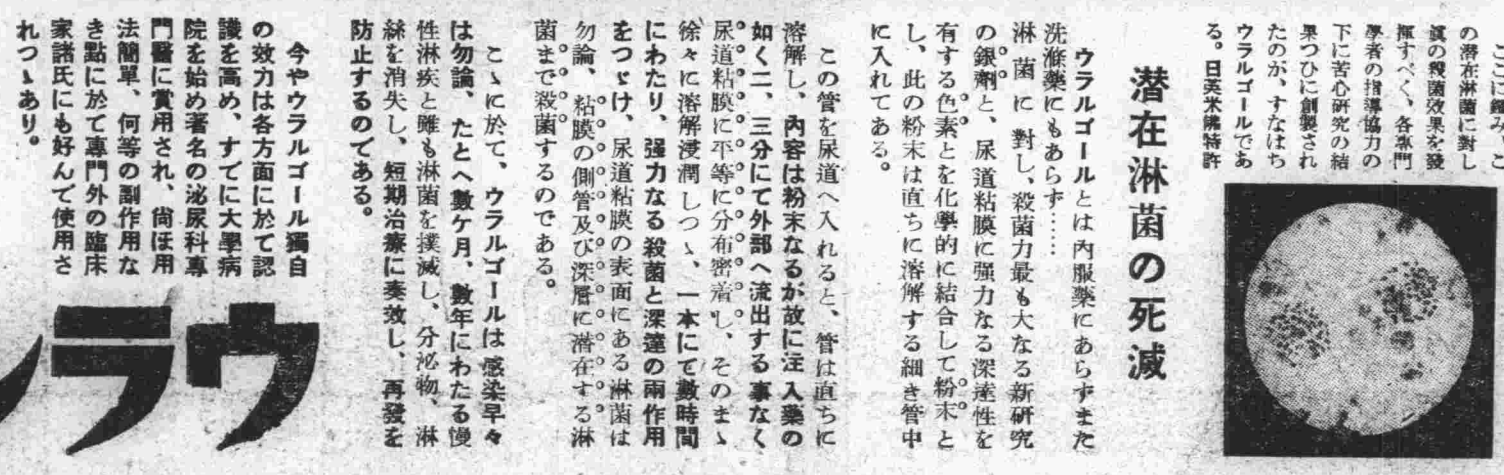 ここに鑑み、こ
の潜在淋菌に對し
眞の殺菌效果を發
揮すべく、各專門
學者の指導協力の
下に苦心研究の結
果つひに創製され
たのが、すなはち
ウラルゴールであ
る。日英米佛特許
潜在淋菌の死滅
ウラルゴールとは內服藥にあらずまた
洗滌藥にもあらず……
淋菌に對し、殺菌力最も大なる新研究
の銀劑と、尿道粘膜に强力なる深達性を
有する色素とを化學的に結合して粉末と
し、此の粉末は直ちに溶解する細き管中
に入れてある。
この管を尿道へ入れると、管は直ちに
溶解し、內容は粉末なるが故に注入藥の
如く二、三分にて外部へ流出する事なく
尿道粘膜に平等に分布密着し、そのまゝ
徐々に溶解浸潤しつゝ、一本にて數時間
にわたり、强力なる殺菌と深達の兩作用
をつゞけ、尿道粘膜の表面にある淋菌は
勿論、粘膜の側管及び深層に潜在する淋
菌まで殺菌するのである。
こゝに於て、ウラルゴールは感染早々
は勿論、たとへ數ケ月、數年にわたる慢
性淋疾と雖も淋菌を撲滅し、分泌物、淋
絲を消失し、短期治療に奏效し、再發を
防止するのである。
今やウラルゴール獨自
の效力は各方面に於て認
識を高め、すでに大學病
院を始め著名の泌尿科專
門醫に賞用され、尙ほ用
法簡單、何等の副作用な
き點に於て專門外の臨床
家諸氏にも好んで使用さ
れつゝあり。
ウラ